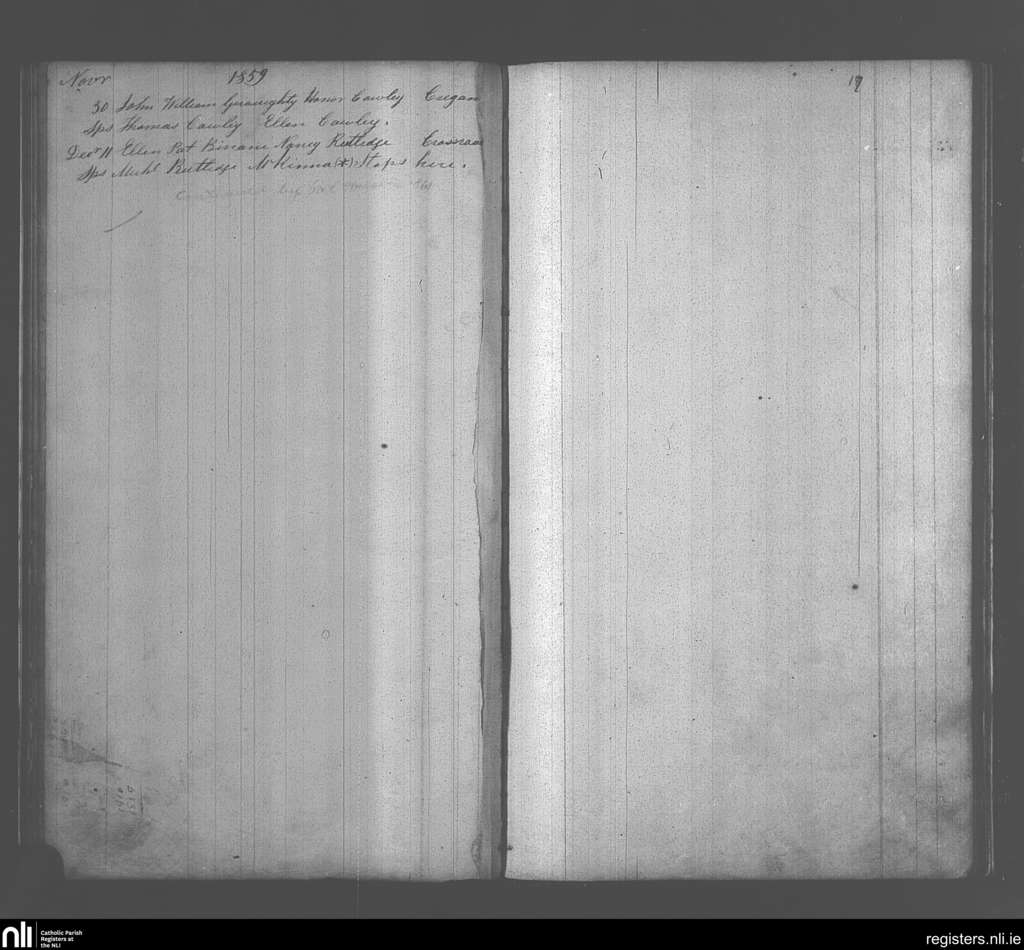 Novr 1859
30 John William Geraughty Honor Cawley Creggan
Sps Thomas Cawley Ellen Cawley.
Decr 11 Ellen Pat Binane Nancy Rutledge
Sps Michl Rutledge McKinna (*) Stops here.
19
nli Catholic Parish
Registers at
the NLI
registers.nli.ie